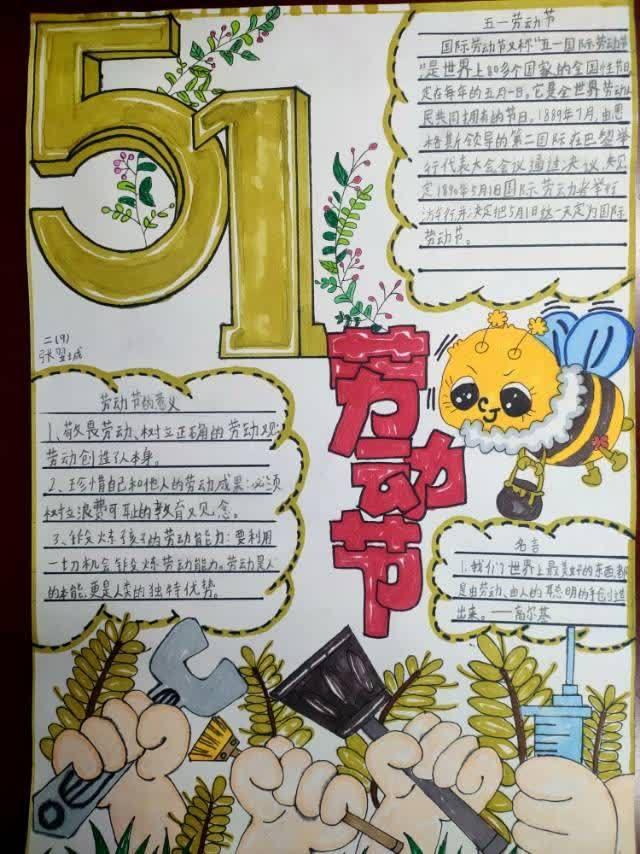 51
五一劳动节
国际劳动节又称“五一国际劳动节
”,是世界上80多个国家的全国性节日
定在每年的五月一日。它是全世界劳动人
民共同拥有的节日。1889年7月,由恩
格斯领导的第二国际在巴黎举
行代表大会会议通过决议,规
定1890年5月1日国际劳动者举行
游行并决定把5月1日这一天定为国际
劳动节。
二(9)
劳动节
劳动节的意义
1、敬畏劳动、树立正确的劳动观:
劳动创造了人本身。
2、珍惜自己和他人的劳动成果:必须
树立浪费可耻的教育观念。
3、锻炼孩子的劳动能力:要利用
一切机会锻炼劳动能力。劳动是人
的本能,更是人类的独特优势。
名言
1.我们世界上最美好的东西,都
是由劳动、由人的聪明的手创造
出来。——高尔基